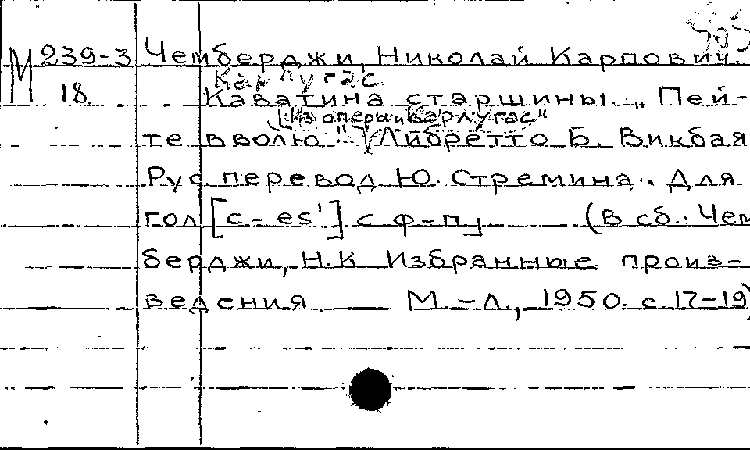 М 239-3 Чемберджи, Николай Карпович.
Карлугас
18 Каватина старшины. „Пей-
[Из оперы „Карлугас"]
те вволю". Либретто Б. Викбая
Рус перевод Ю. Стремина. Для
гол [c – es'] с ф-п. (В сб.: Чем
берджи, Н.К Избранные произ-
ведения М.-Л., 1950. с. 17-19)